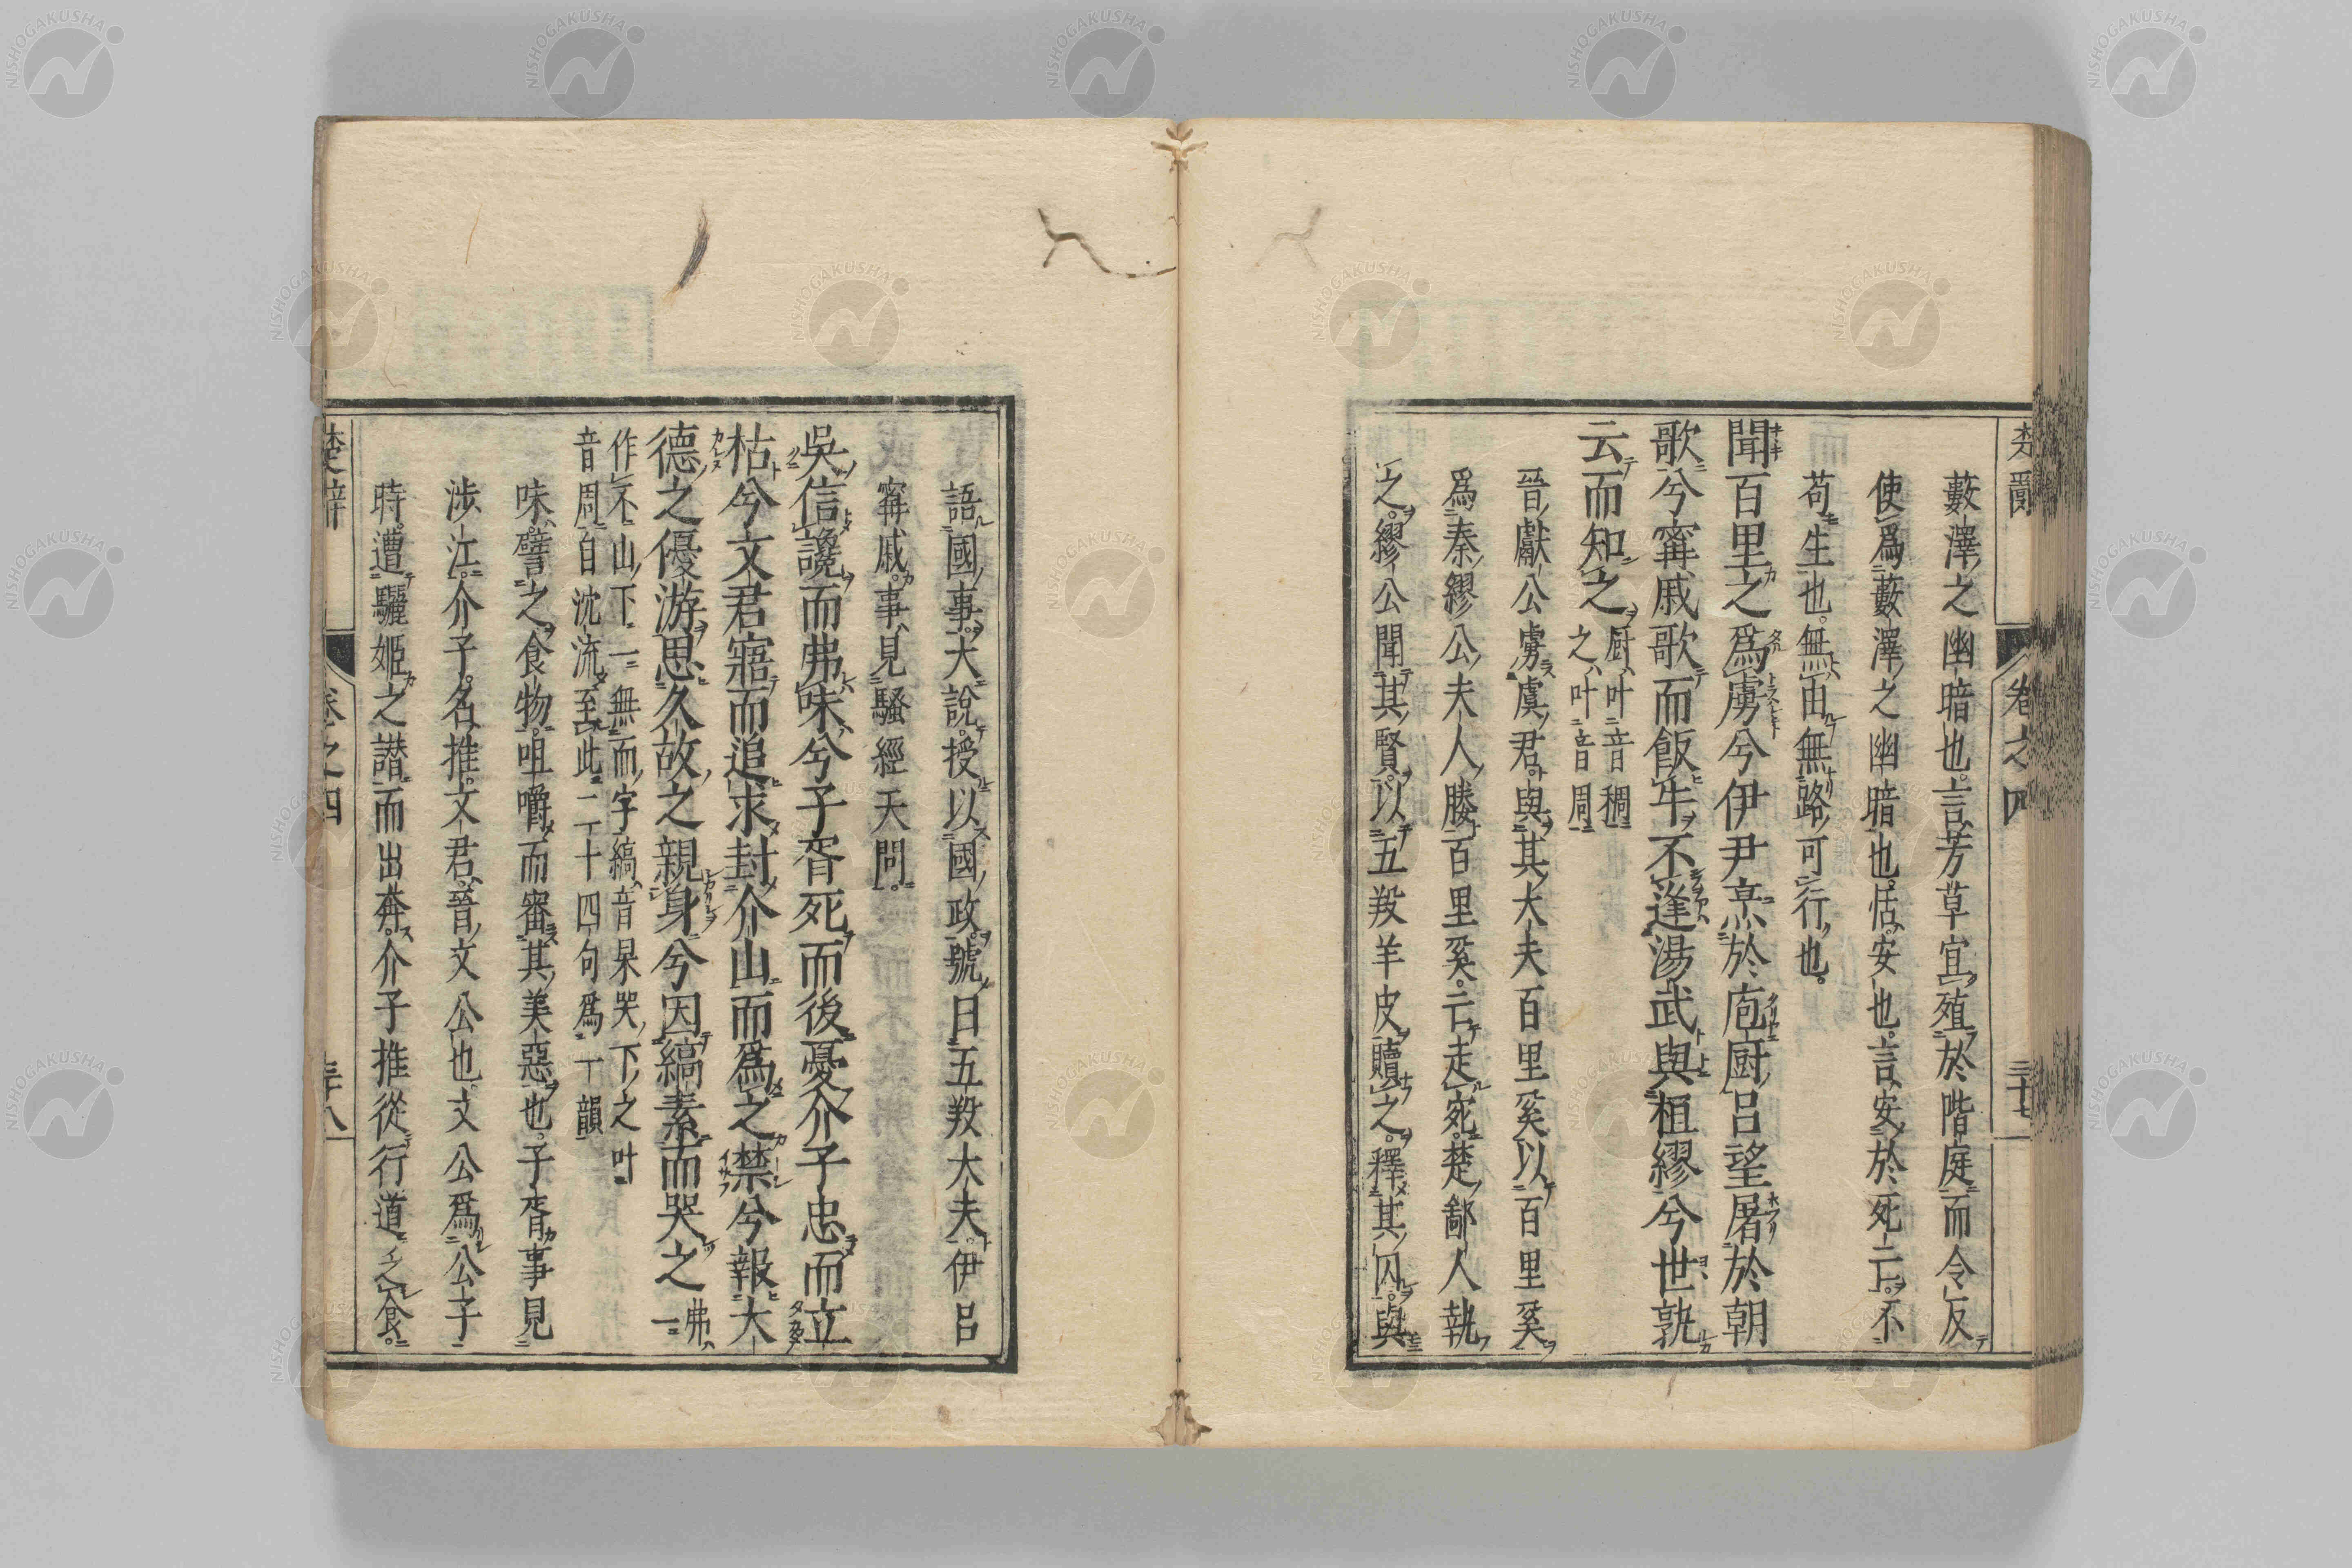 楚辭 卷之四 三十七
藪澤之幽暗也。言芳草宜殖於階庭而令反
使爲藪澤之幽暗也。恬安也。言安於死亡。不
苟生也。無由無路可行也。
聞百里之爲虜兮伊尹烹於庖厨呂望屠於朝
歌兮甯戚歌而飯牛不逢湯武與桓繆兮世孰
云而知之
厨叶音稠
之叶音周
晉獻公虜虞君與其大夫百里奚以百里奚
爲秦繆公夫人媵百里奚。亡走宛。楚鄙人執
之。繆公聞其賢。以五羖羊皮贖之。釋其囚。與
語國事。大說。授以國政。號曰五羖大夫。伊呂
甯戚。事見騷經天問。
吳信讒而弗味兮子胥死而後憂介子忠而立
枯兮文君寤而追求封介山而爲之禁兮報大
德之優游思久故之親身兮因縞素而哭之
弗一
作不山下一無而字縞音杲哭下之叶
音周自沈流至此二十四句爲一韻
味。譬之食物。咀嚼而審其美惡也。子胥事見
涉江。介子。名推。文君。晉文公也。文公爲公子
時。遭驪姬之譖而出奔。介子推從行道乏食。
楚辭 卷之四 三十八
NISHOGAKUSHA